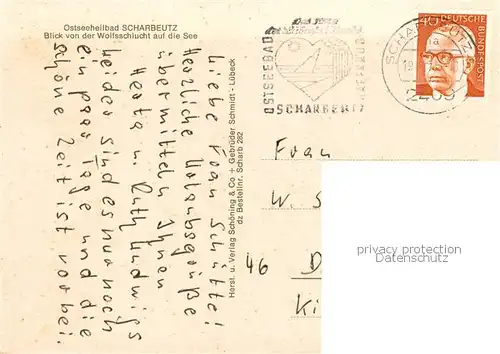 Ostseeheilbad SCHARBEUTZ
Blick von der Wolfsschlucht auf die See
Liebe Frau Schütte!
Herzliche Urlaubsgrüße
übermitteln Ihnen
Herta u. Ruth Ludwigs
Leider sind es nur noch
ein paar Tage und die
schöne Zeit ist vorbei.
Herst. u. Verlag Schöning & Co + Gebrüder Schmidt - Lübeck
dz Bestellnr. Scharb 282
OSTSEEBAD
SCHARBEUTZ
SCHARBEUTZ
40 DEUTSCHE
BUNDESPOST
Frau
W. S
46 D
Ki
privacy protection
Datenschutz